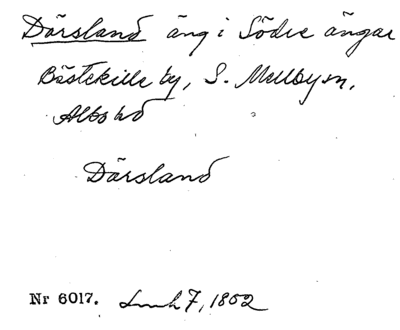 Därsland äng i Södre ängar
Bästekille by, S. Mellby sn.
Albo hd
Därsland
Nr 6017. Lmh 7, 1802